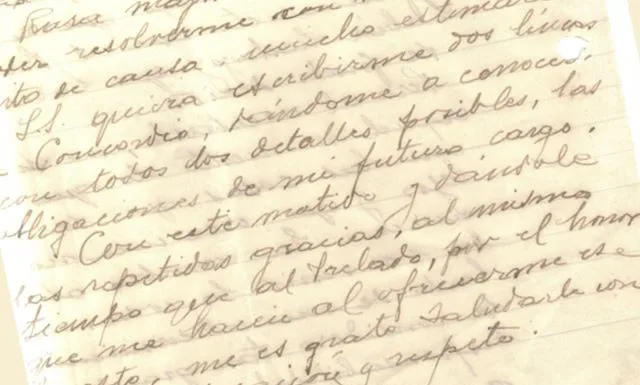 Rosa
der resolverme con
to de causa mucho estimaré
S.S. quiera escribirme dos líneas
Concordia, dándome a conocer,
con todos dos detalles posibles, las
obligaciones de mi futuro cargo.
Con este motivo y dándole
las repetidas gracias, al mismo
tiempo que al Prelado, por el honor
que me hacen al ofrecerme ese
me es grato saludarle con
y respeto.